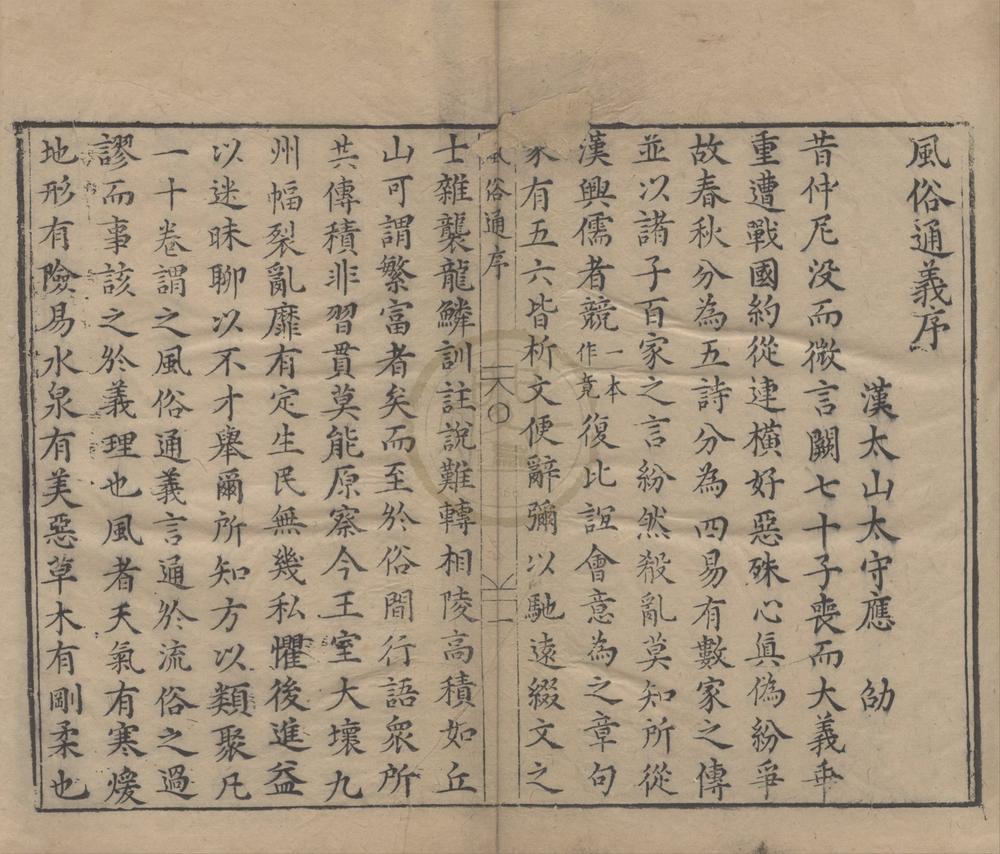 風俗通義序
漢太山太守應劭
昔仲尼没而微言闕七十子喪而大義乖
重遭戰國約從連橫好惡殊心真偽紛爭
故春秋分為五詩分為四易有數家之傳
並以諸子百家之言紛然殽亂莫知所從
漢興儒者競一本作竟復比誼會意為之章句
家有五六皆析文便辭彌以馳遠綴文之
風俗通序
士雜襲龍鱗訓註說難轉相陵高積如丘
山可謂繁富者矣而至於俗間行語衆所
共傳積非習貫莫能原察今王室大壞九
州幅裂亂靡有定生民無幾私懼後進益
以迷昧聊以不才舉爾所知方以類聚凡
一十卷謂之風俗通義言通於流俗之過
謬而事該之於義理也風者天氣有寒煖
地形有險易水泉有美惡草木有剛柔也